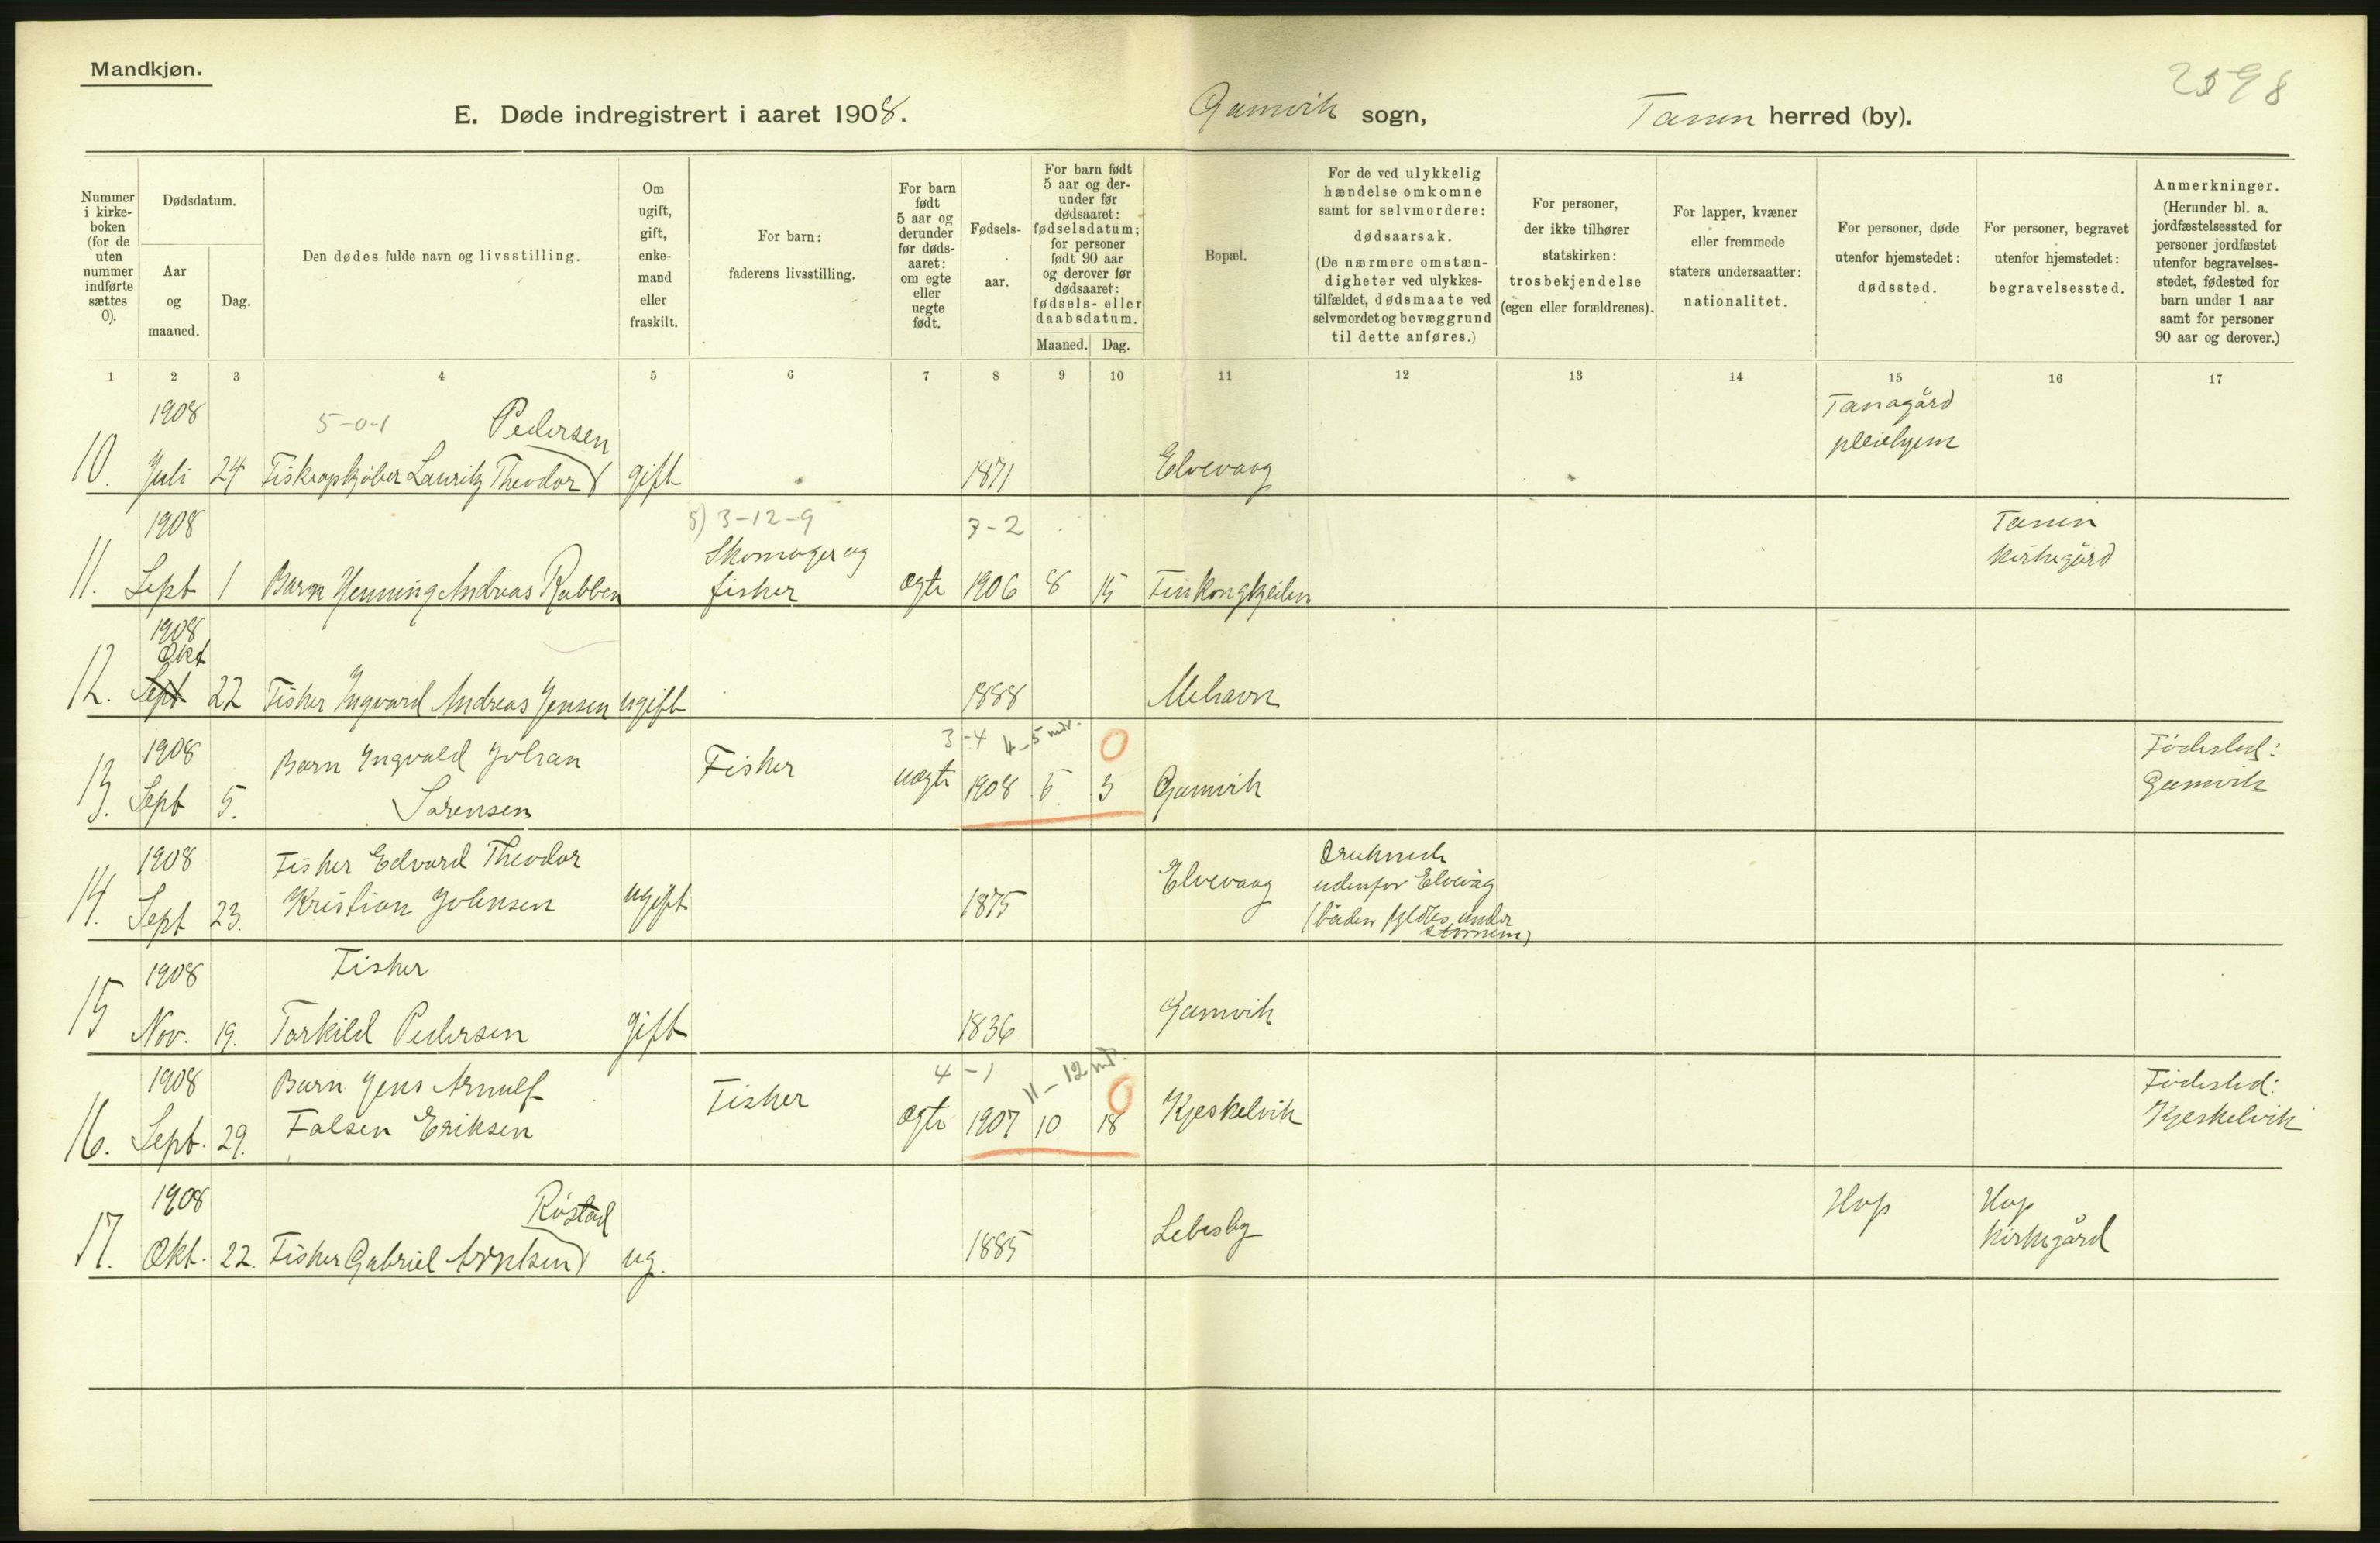 Mandkjøn.
2598
E. Døde indregistrert i aaret 1908.
Gamvik sogn,
Tanen herred (by).
Nummer i kirke-boken (for de uten nummer indførte sættes 0).
Dødsdatum.
Aar og maaned.
Dag.
Den dødes fulde navn og livsstilling.
Om ugift, gift, enke-mand eller fraskilt.
For barn: faderens livsstilling.
For barn født 5 aar og derunder før døds-aaret: om egte eller uegte født.
Fødsels-aar.
For barn født 5 aar og der-under før dødsaaret: fødselsdatum; for personer født 90 aar og derover før dødsaaret: fødsels- eller daabsdatum.
Maaned. Dag.
Bopæl.
For de ved ulykkelig hændelse omkomne samt for selvmordere: dødsaarsak. (De nærmere omstæn-digheter ved ulykkes-tilfældet, dødsmaate ved selvmordet og bevæggrund til dette anføres.)
For personer, der ikke tilhører statskirken: trosbekjendelse (egen eller forældrenes).
For lapper, kvæner eller fremmede staters undersaatter: nationalitet.
For personer, døde utenfor hjemstedet: dødssted.
For personer, begravet utenfor hjemstedet: begravelsessted.
Anmerkninger. (Herunder bl. a. jordfæstelsessted for personer jordfæstet utenfor begravelses-stedet, fødested for barn under 1 aar samt for personer 90 aar og derover.)
1 2 3 4 5 6 7 8 9 10 11 12 13 14 15 16 17
1908 5-0-1 Pedersen Tanagård
pleiehjem
10. Juli 24 Fiskeopkjøber Lauritz Theodor gift 1871 Elvevaag
1908 5) 3-12-9 7-2 Tanen
Skomager og kirkegård
11. Sept 1 Barn Henning Andreas Rabben fisker ægte 1906 8 15 Finkongkjeilen
1908
Okt
12. Sept 22 Fisker Ingvard Andreas Jensen ugift 1888 Mehavn
3-4 4-5 mdr. 0
1908 Barn Ingvald Johan Fisker Fødested:
13. Sept 5. Sørensen uægte 1908 5 3 Gamvik Gamvik
1908 Fisker Edvard Theodor Druknede
14. Sept 23. Kristian Johnsen ugift 1875 Elvevaag udenfor Elvevåg
(båden fyldtes under
stormen)
1908 Fisker
15 Nov. 19. Torkild Pedersen gift 1836 Gamvik
4-1 11-12 md. 0
1908 Barn Jens Arnulf Fisker Fødested:
16. Sept. 29. Falsen Eriksen ægte 1907 10 18 Kjeskelvik Kjeskelvik
1908 Røstad Hop Hop
kirkegård
17. Okt. 22. Fisker Gabriel Arntsen ug. 1885 Lebesby